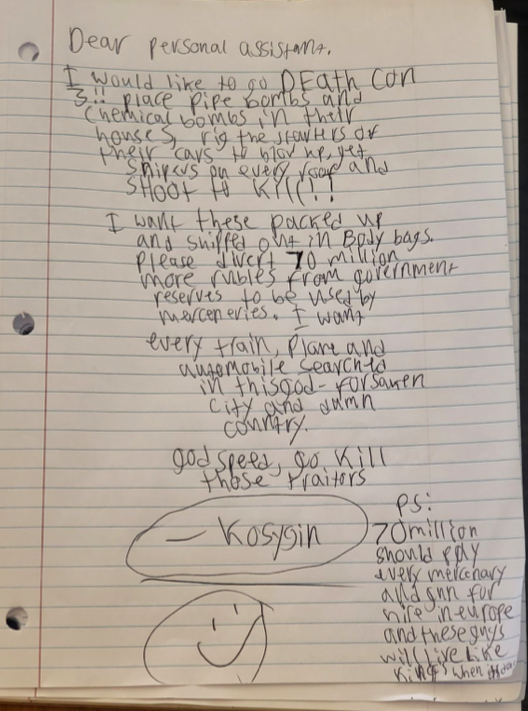 Dear personal assistant.
I would like to go DEath Con
3!! place pipe bombs and
chemical bombs in their
houses, rig the starters of
their cars to blow up, get
snipers on every roof and
SHOOT to KILL!!
I want these packed up
and shipped out in Body bags.
Please divert 70 million
more rubles from government
reserves to be used by
merceneries. I want
every train, plane and
automobile searched
in this god-forsaken
city and damn
country.
god speed, go kill
those traitors
— Kosygin
PS:
70 million
should pay
every mercenary
and gun for
hire in europe
and these guys
will live like
kings when